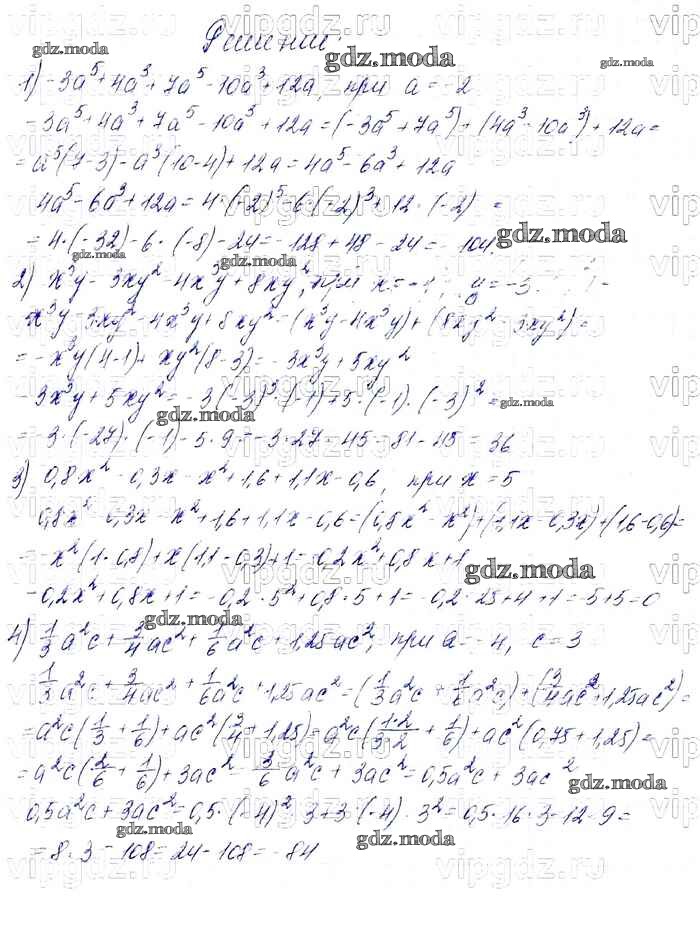 Решение:
1) -3a⁵+4a³+7a⁵-10a³+12a, при a=-2
-3a⁵+4a³+7a⁵-10a³+12a=(-3a⁵+7a⁵)+(4a³-10a³)+12a=
=a⁵(7-3)-a³(10-4)+12a=4a⁵-6a³+12a
4a⁵-6a³+12a=4·(-2)⁵-6·(-2)³+12·(-2)=
=4·(-32)-6·(-8)-24=-128+48-24=-104.
2) x³y-3xy²-4x³y+8xy², при x=-1, y=-3.
x³y-3xy²-4x³y+8xy²=(x³y-4x³y)+(8xy²-3xy²)=
=-x³y(4-1)+xy²(8-3)=-3x³y+5xy²
-3x³y+5xy²=-3(-3)³·(-1)+5·(-1)·(-3)²=
=-3·(-27)·(-1)-5·9=-3·27-45=81-45=36
3) 0,8x²-0,3x-x²+1,6+1,1x-0,6, при x=5
0,8x²-0,3x-x²+1,6+1,1x-0,6=(0,8x²-x²)+(1,1x-0,3x)+(1,6-0,6)=
=-x²(1-0,8)+x(1,1-0,3)+1=-0,2x²+0,8x+1
-0,2x²+0,8x+1=-0,2·5²+0,8·5+1=-0,2·25+4+1=-5+5=0
4) 1/3a²c+3/4ac²+1/6a²c+1,25ac², при a=-4, c=3
1/3a²c+3/4ac²+1/6a²c+1,25ac²=(1/3a²c+1/6a²c)+(3/4ac²+1,25ac²)=
=a²c(1/3+1/6)+ac²(3/4+1,25)=a²c(1·2/3·2+1/6)+ac²(0,75+1,25)=
=a²c(2/6+1/6)+3ac²=3/6a²c+3ac²=0,5a²c+3ac²
0,5a²c+3ac²=0,5·(-4)²·3+3·(-4)·3²=0,5·16·3-12·9=
=8·3-108=24-108=-84
gdz.moda
vipgdz.ru